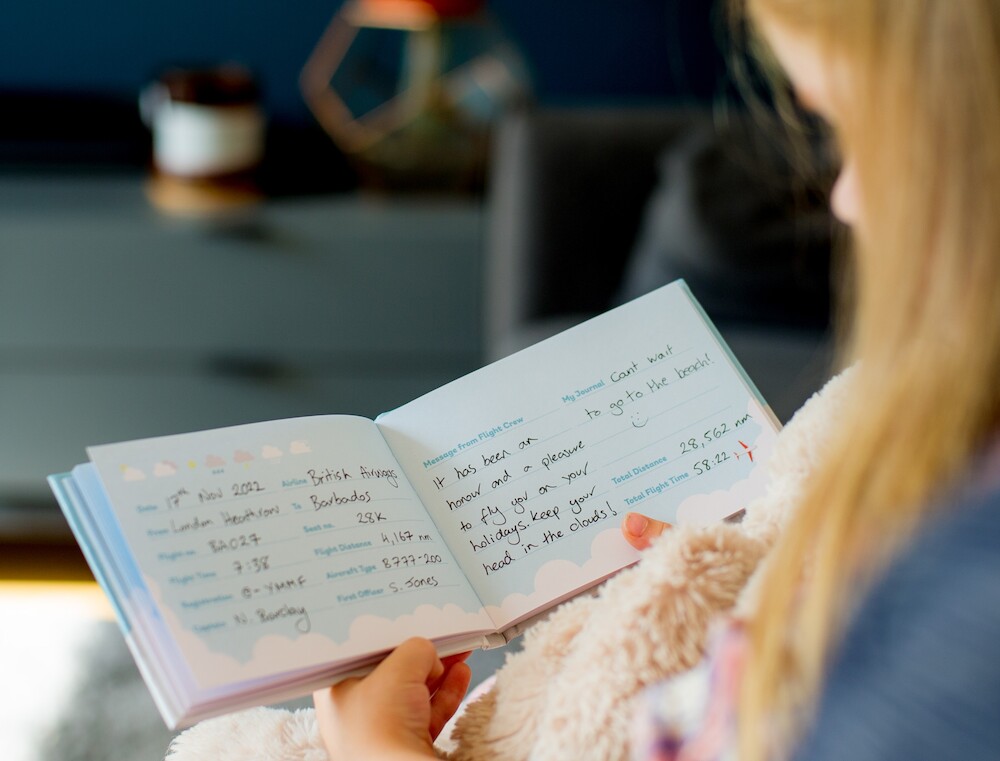 Date 17th Nov 2022 Airline British Airways
From London Heathrow To Barbados
Flight no. BA027 Seat no. 28K
Flight Time 7:38 Flight Distance 4,167 nm
Registration G-YMMF Aircraft Type B777-200
Captain N. Barclay First Officer S. Jones
Message from Flight Crew
It has been an
honour and a pleasure
to fly you on your
holidays. Keep your
head in the clouds!
My Journal Cant wait
to go to the beach!
Total Distance 28,562 nm
Total Flight Time 58:22